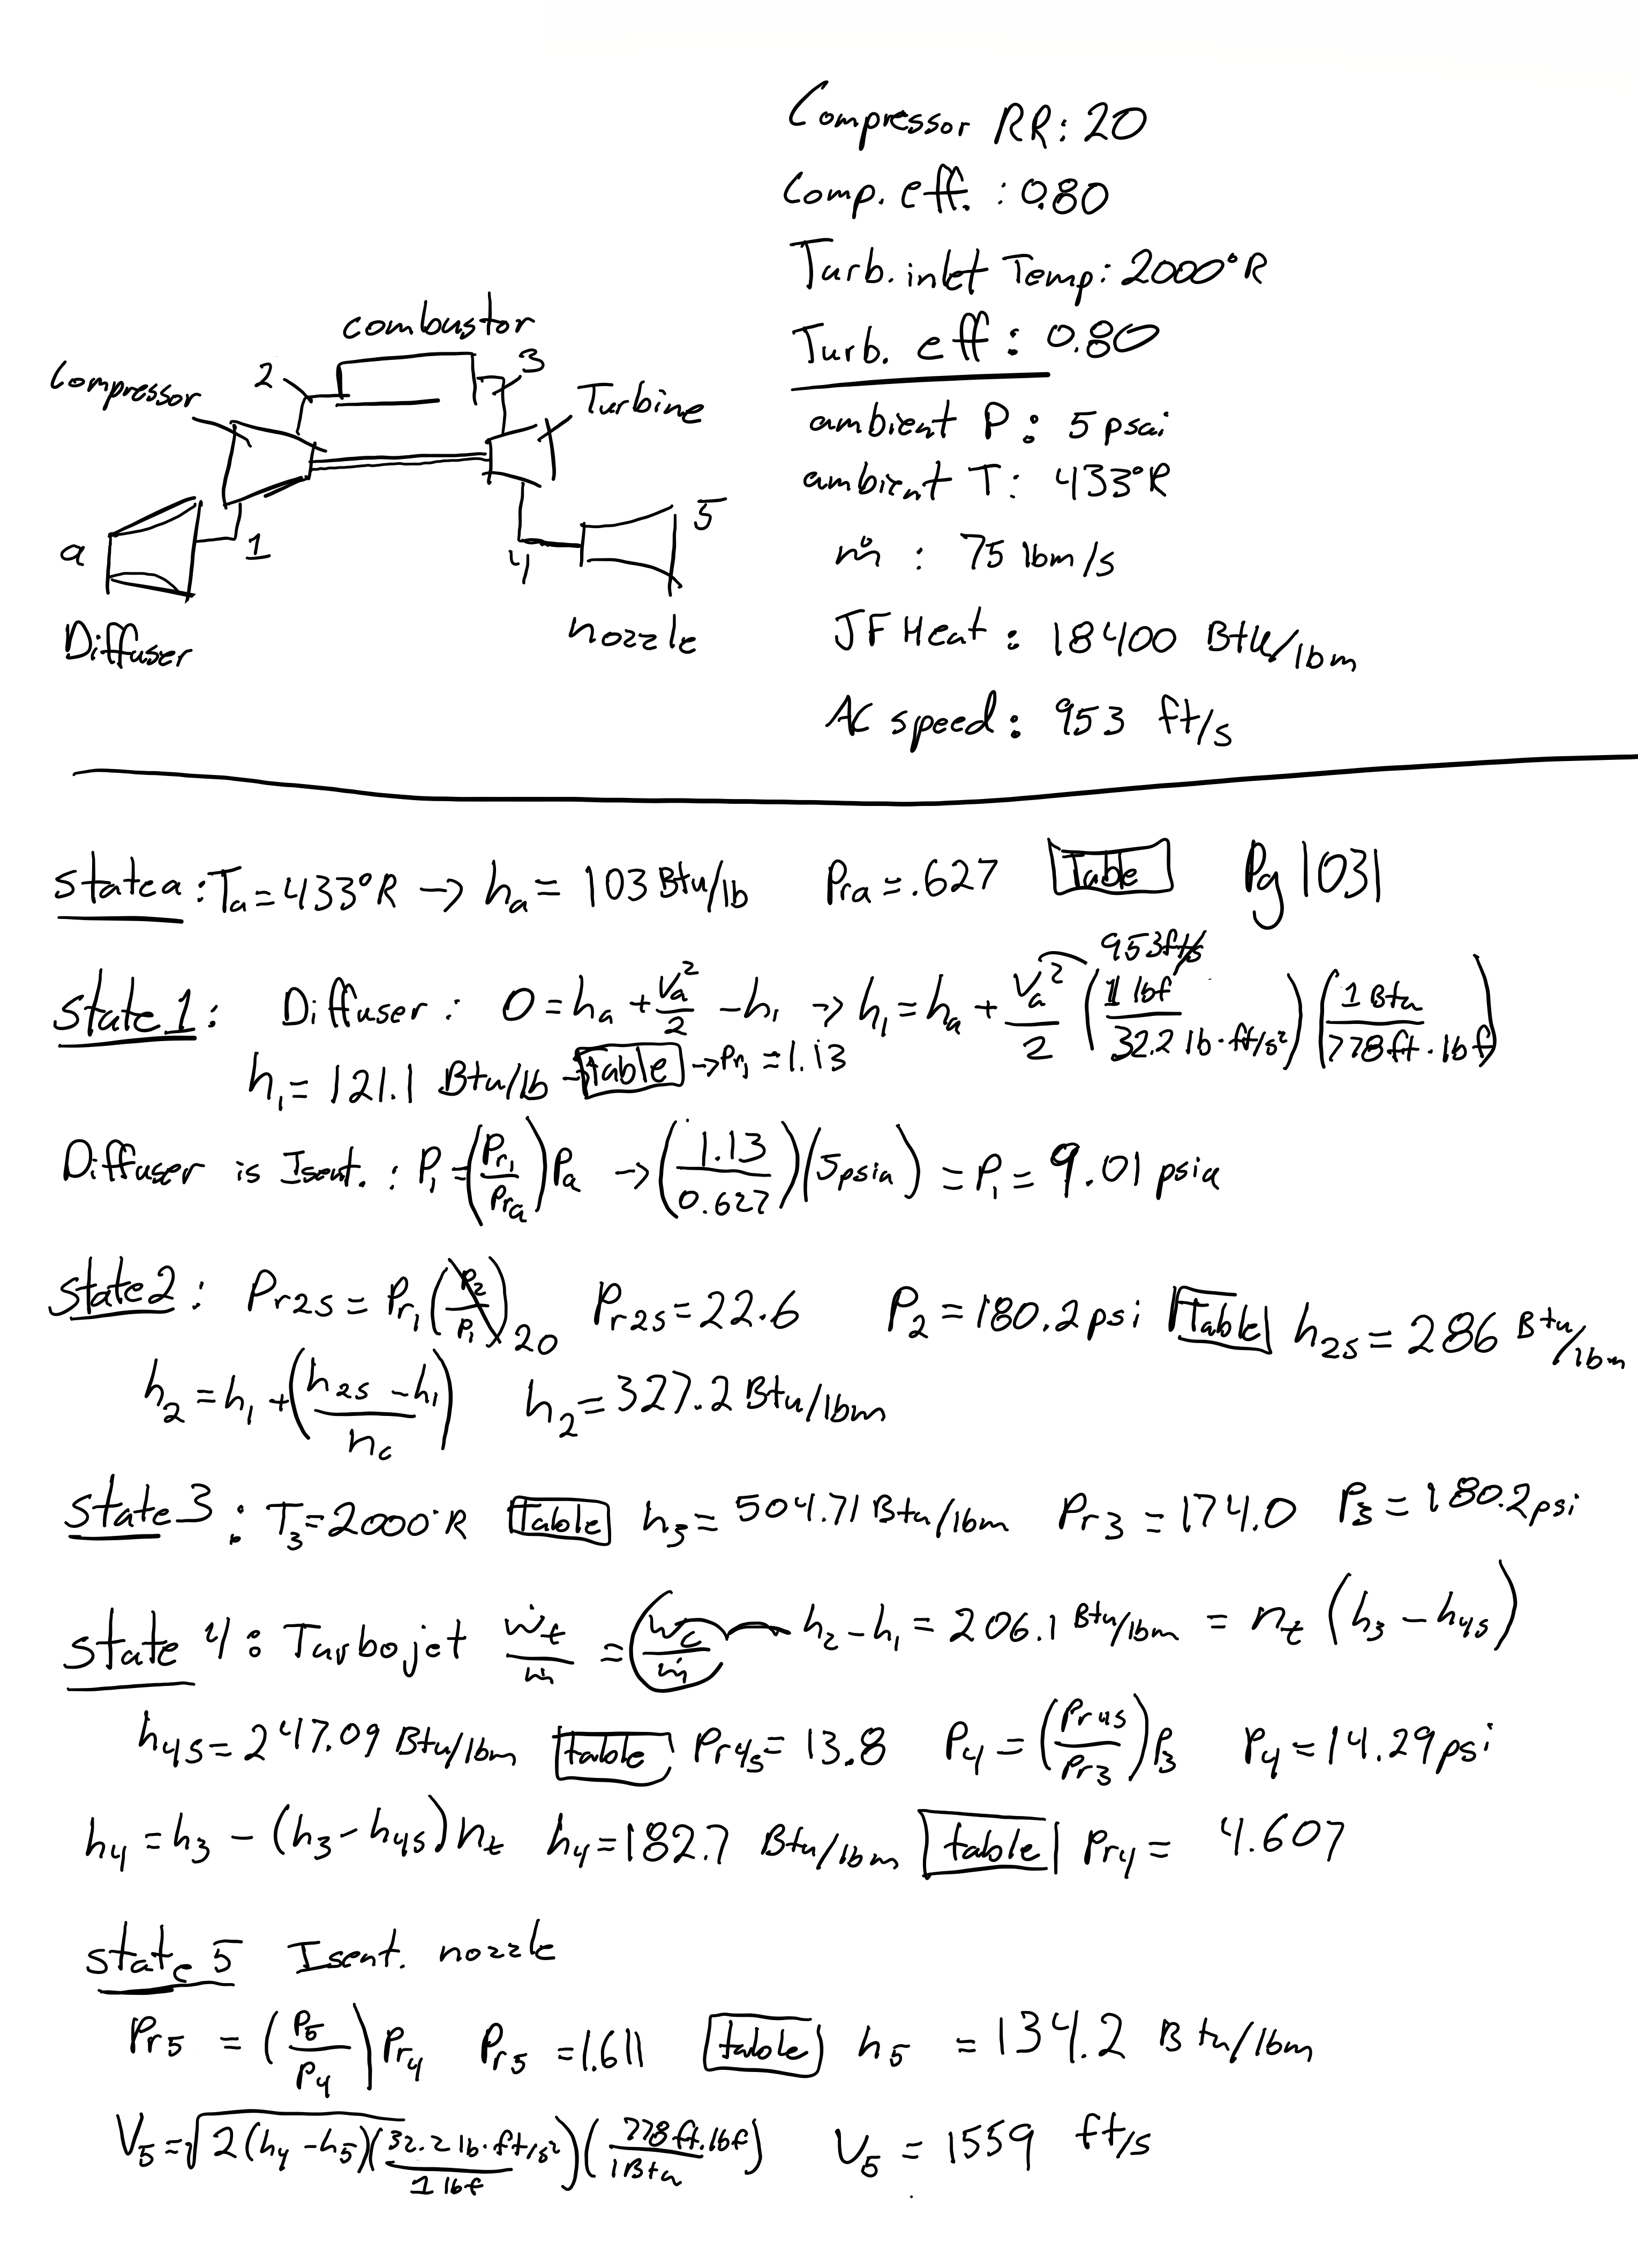 Compressor RR: 20
Comp. eff. : 0.80
Turb. inlet Temp: 2000°R
Turb. eff: 0.80
ambient P: 5 psai
ambient T: 433°R
ṁ : 75 lbm/s
JF Heat: 18400 Btu/lbm
AC speed: 953 ft/s
combustor
Compressor 2 3 Turbine
a 1 4 5
Diffuser nozzle
state a: Ta = 433°R → ha = 103 Btu/lb Pra = .627 Table Pg 1031
State 1: Diffuser: 0 = ha + Va²/2 - h1 → h1 = ha + Va²/2 (1 lbf / 32.2 lb·ft/s²) (1 Btu / 778 ft·lbf) 953 ft/s
h1 = 121.1 Btu/lb → table → Pr1 = 1.13
Diffuser is Isent.: P1 = (Pr1/Pra) Pa → (1.13/0.627)(5 psia) = P1 = 9.01 psia
State 2: Pr2s = Pr1 (P2/P1) 20 Pr2s = 22.6 P2 = 180.2 psi Table h2s = 286 Btu/lbm
h2 = h1 + ((h2s - h1)/nc) h2 = 327.2 Btu/lbm
State 3: T3 = 2000°R Table h3 = 504.71 Btu/lbm Pr3 = 174.0 P3 = 180.2 psi
State 4: Turbojet Ẇt/ṁ = Ẇc/ṁ h2 - h1 = 206.1 Btu/lbm = nt (h3 - h4s)
h4s = 247.09 Btu/lbm table Pr4s = 13.8 P4 = (Pr4s/Pr3) P3 P4 = 14.29 psi
h4 = h3 - (h3 - h4s) nt h4 = 182.7 Btu/lbm table Pr4 = 4.607
state 5 Isent. nozzle
Pr5 = (P5/P4) Pr4 Pr5 = 1.611 table h5 = 134.2 Btu/lbm
V5 = √2(h4 - h5)(32.2 lb·ft/s² / 1 lbf)(778 ft·lbf / 1 Btu) V5 = 1559 ft/s